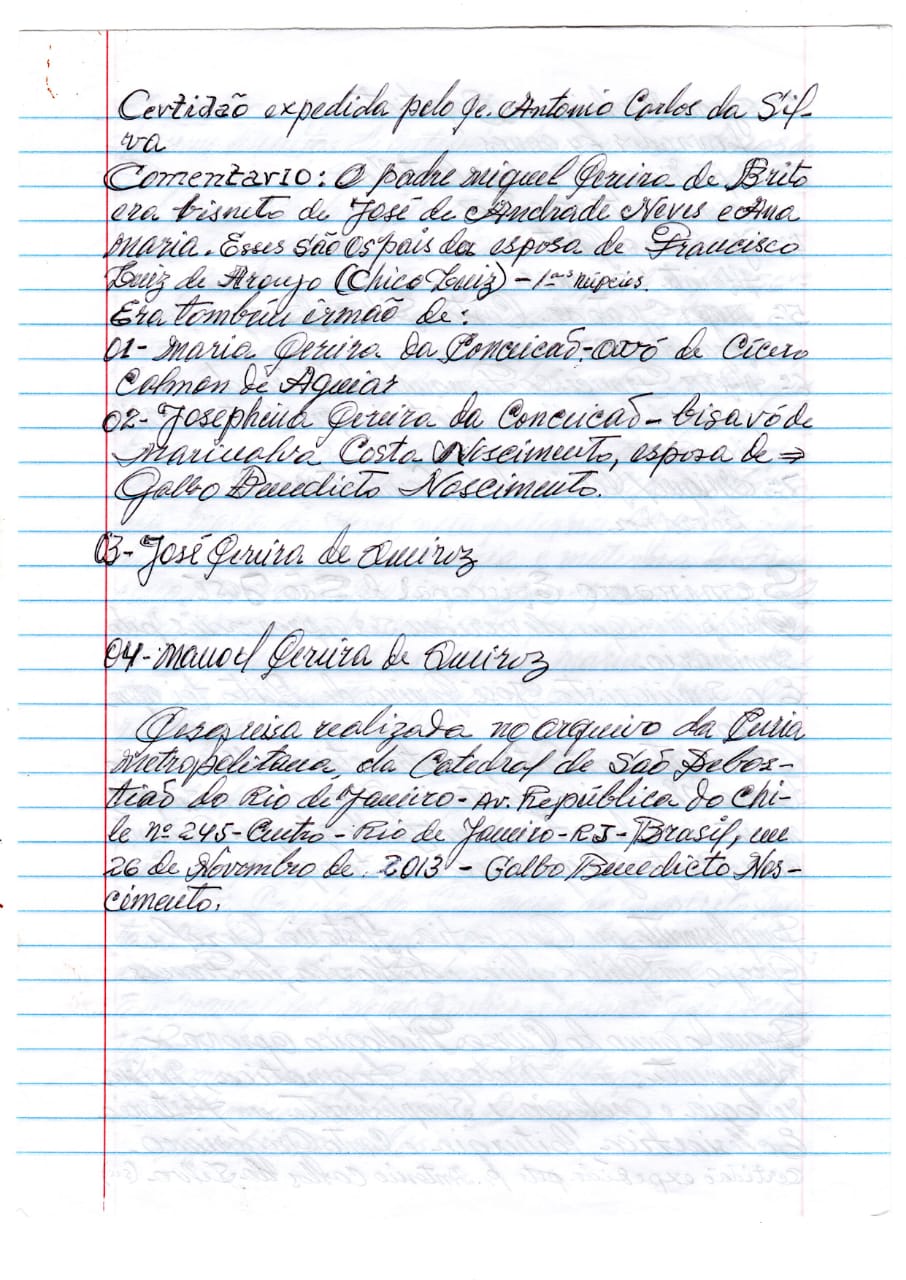 Certidão expedida pelo Pe. Antonio Carlos da Sil-
va
Comentario: O padre Miguel Pereira de Brito
era bisneto de José de Andrade Neves e Ana
Maria. Esses são os pais da esposa de Francisco
Luiz de Araujo (Chico Luiz) - 1ªs núpcias.
Era também irmão de:
01- Maria Pereira da Conceicão - avó de Cícero
Calmon de Aguiar
02- Josephina Pereira da Conceicão - bisavó de
Marinalva Costa Nascimento, esposa de ⇒
Galbo Benedicto Nascimento.
03- José Pereira de Queiroz
04- Manoel Pereira de Queiroz
Pesquisa realizada no arquivo da Curia
Metropolitana, da Catedral de São Sebas-
tião do Rio de Janeiro - Av. República do Chi-
le nº 245 - Centro - Rio de Janeiro - RJ - Brasil, em
26 de Novembro de 2013 - Galbo Benedicto Nas-
cimento.